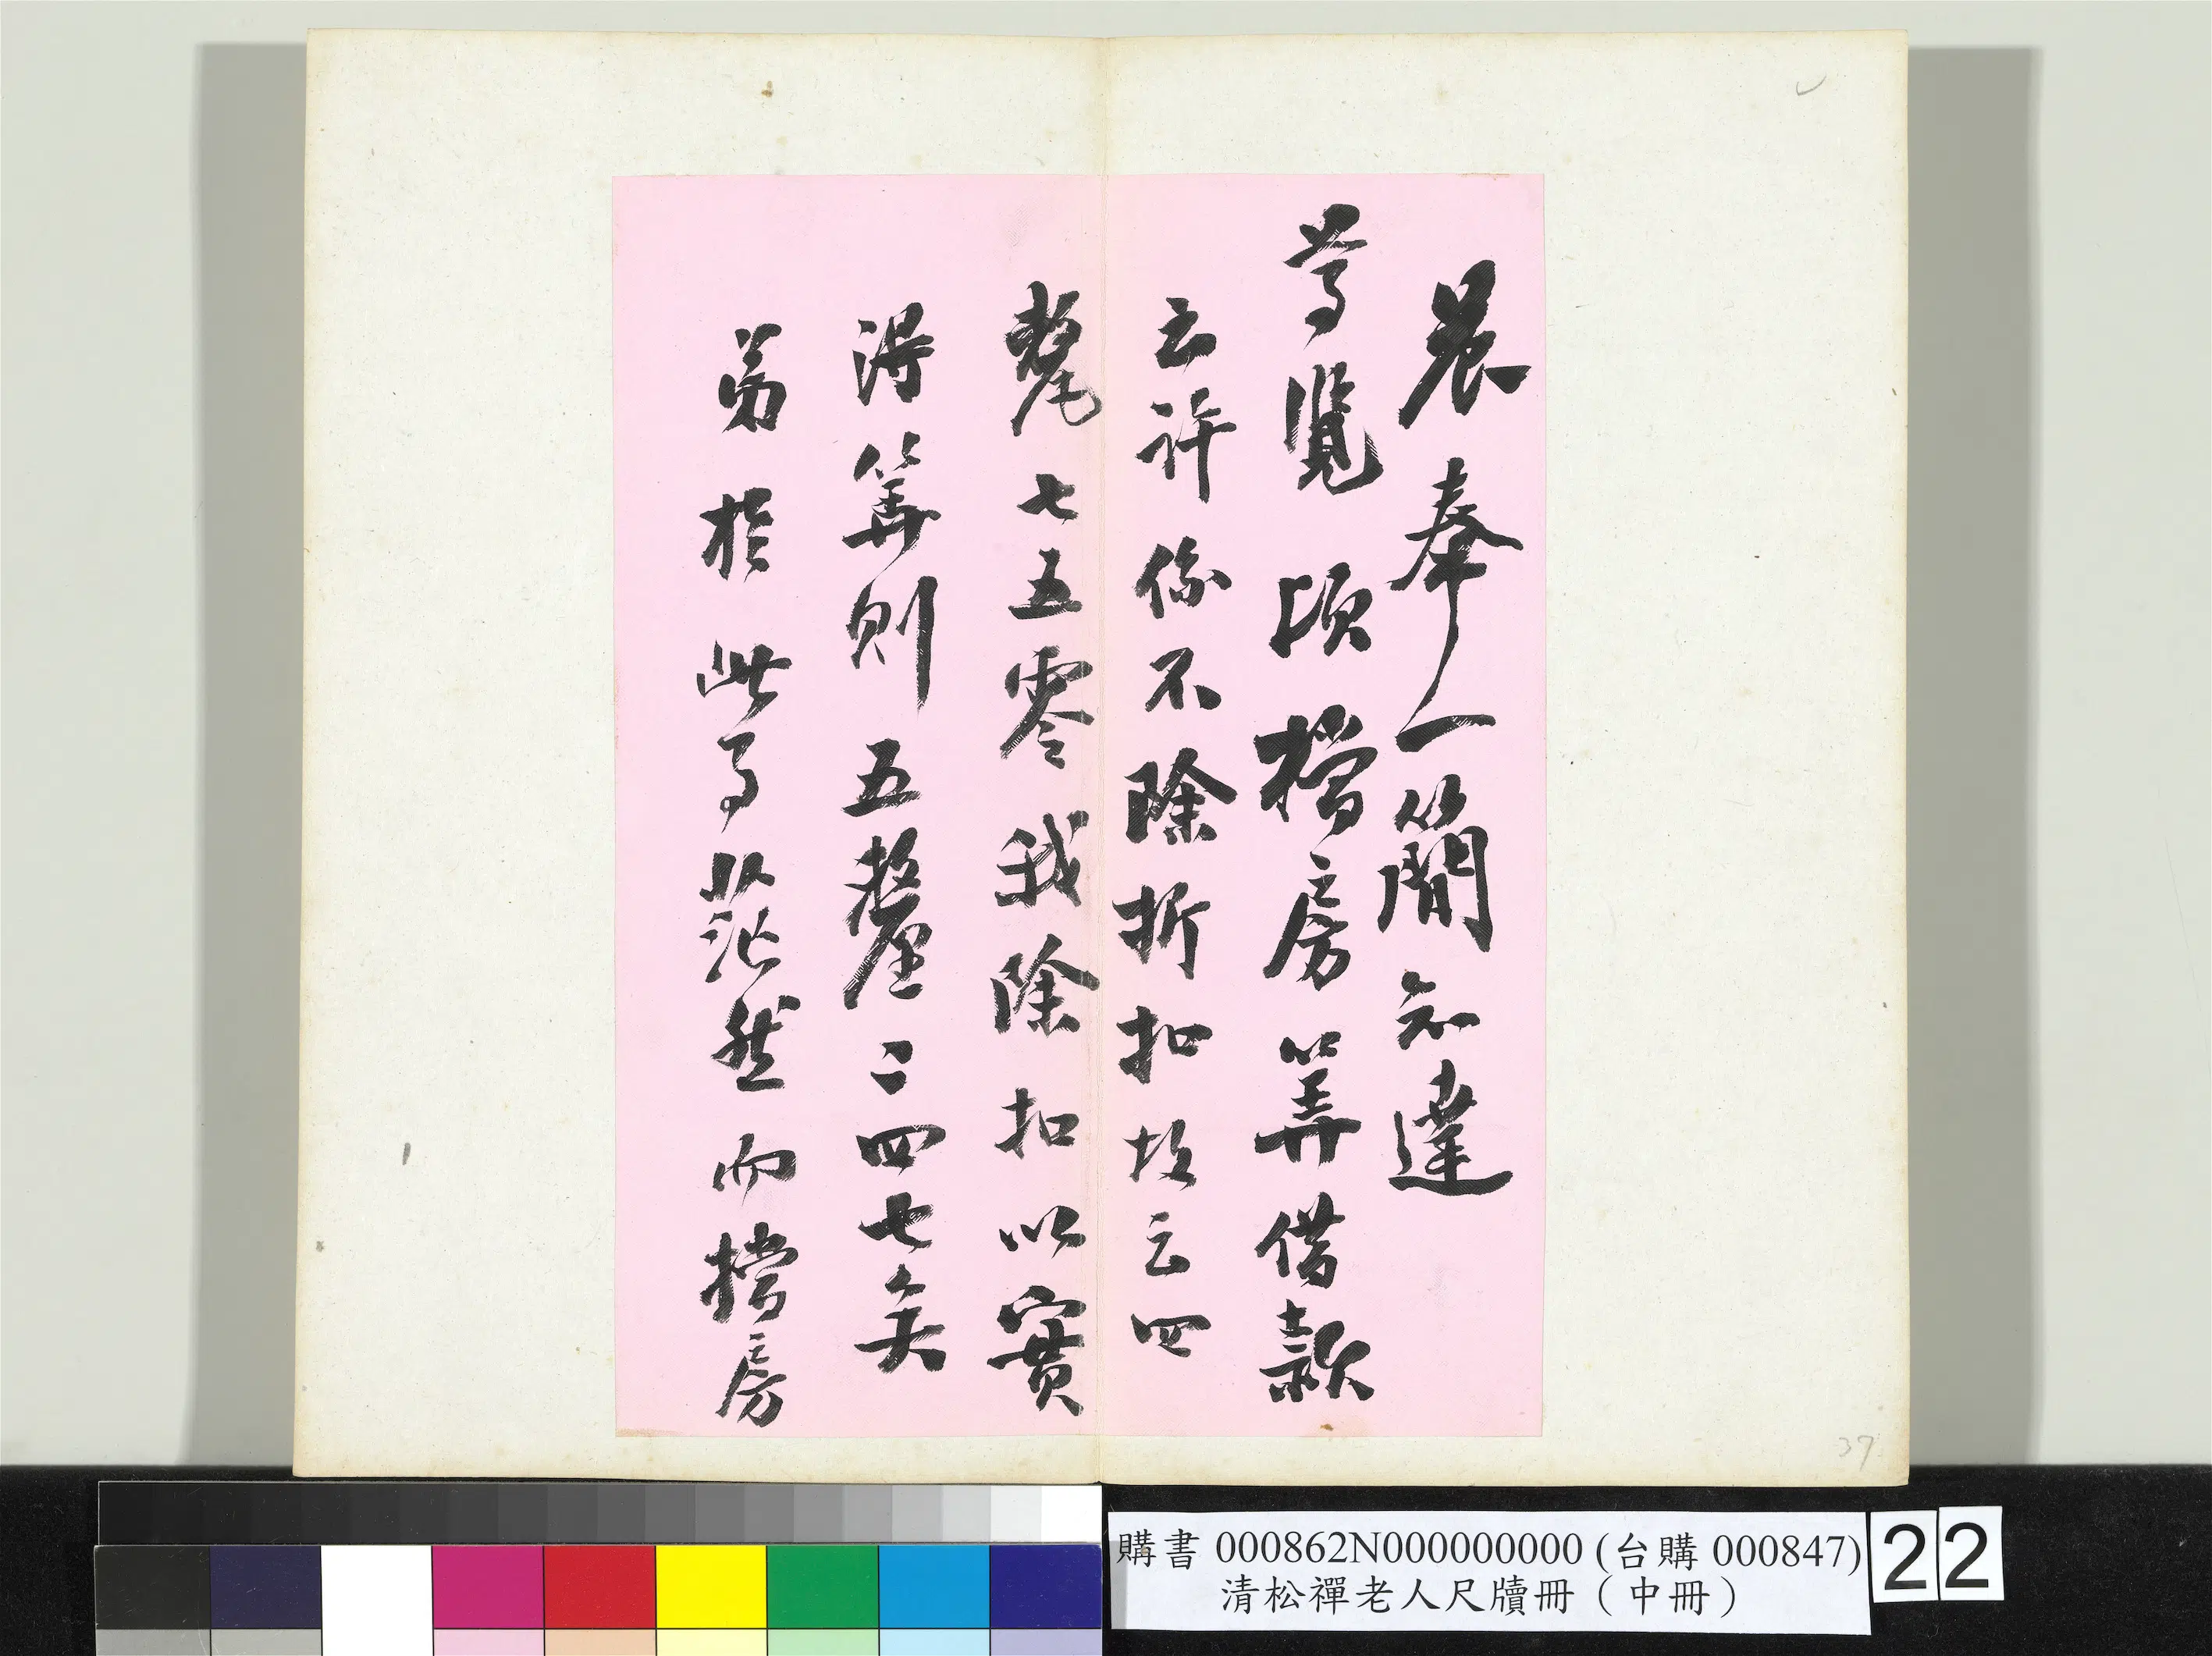 晨奉一簡知達
尊覽頃檔房算借款
云許係不除折扣故云四
氂七五零我除扣以實
得算則五釐二四七矣
弟於此事茫然而檔房
37
購書 000862N000000000 (台購 000847)
清松禪老人尺牘冊（中冊）
22